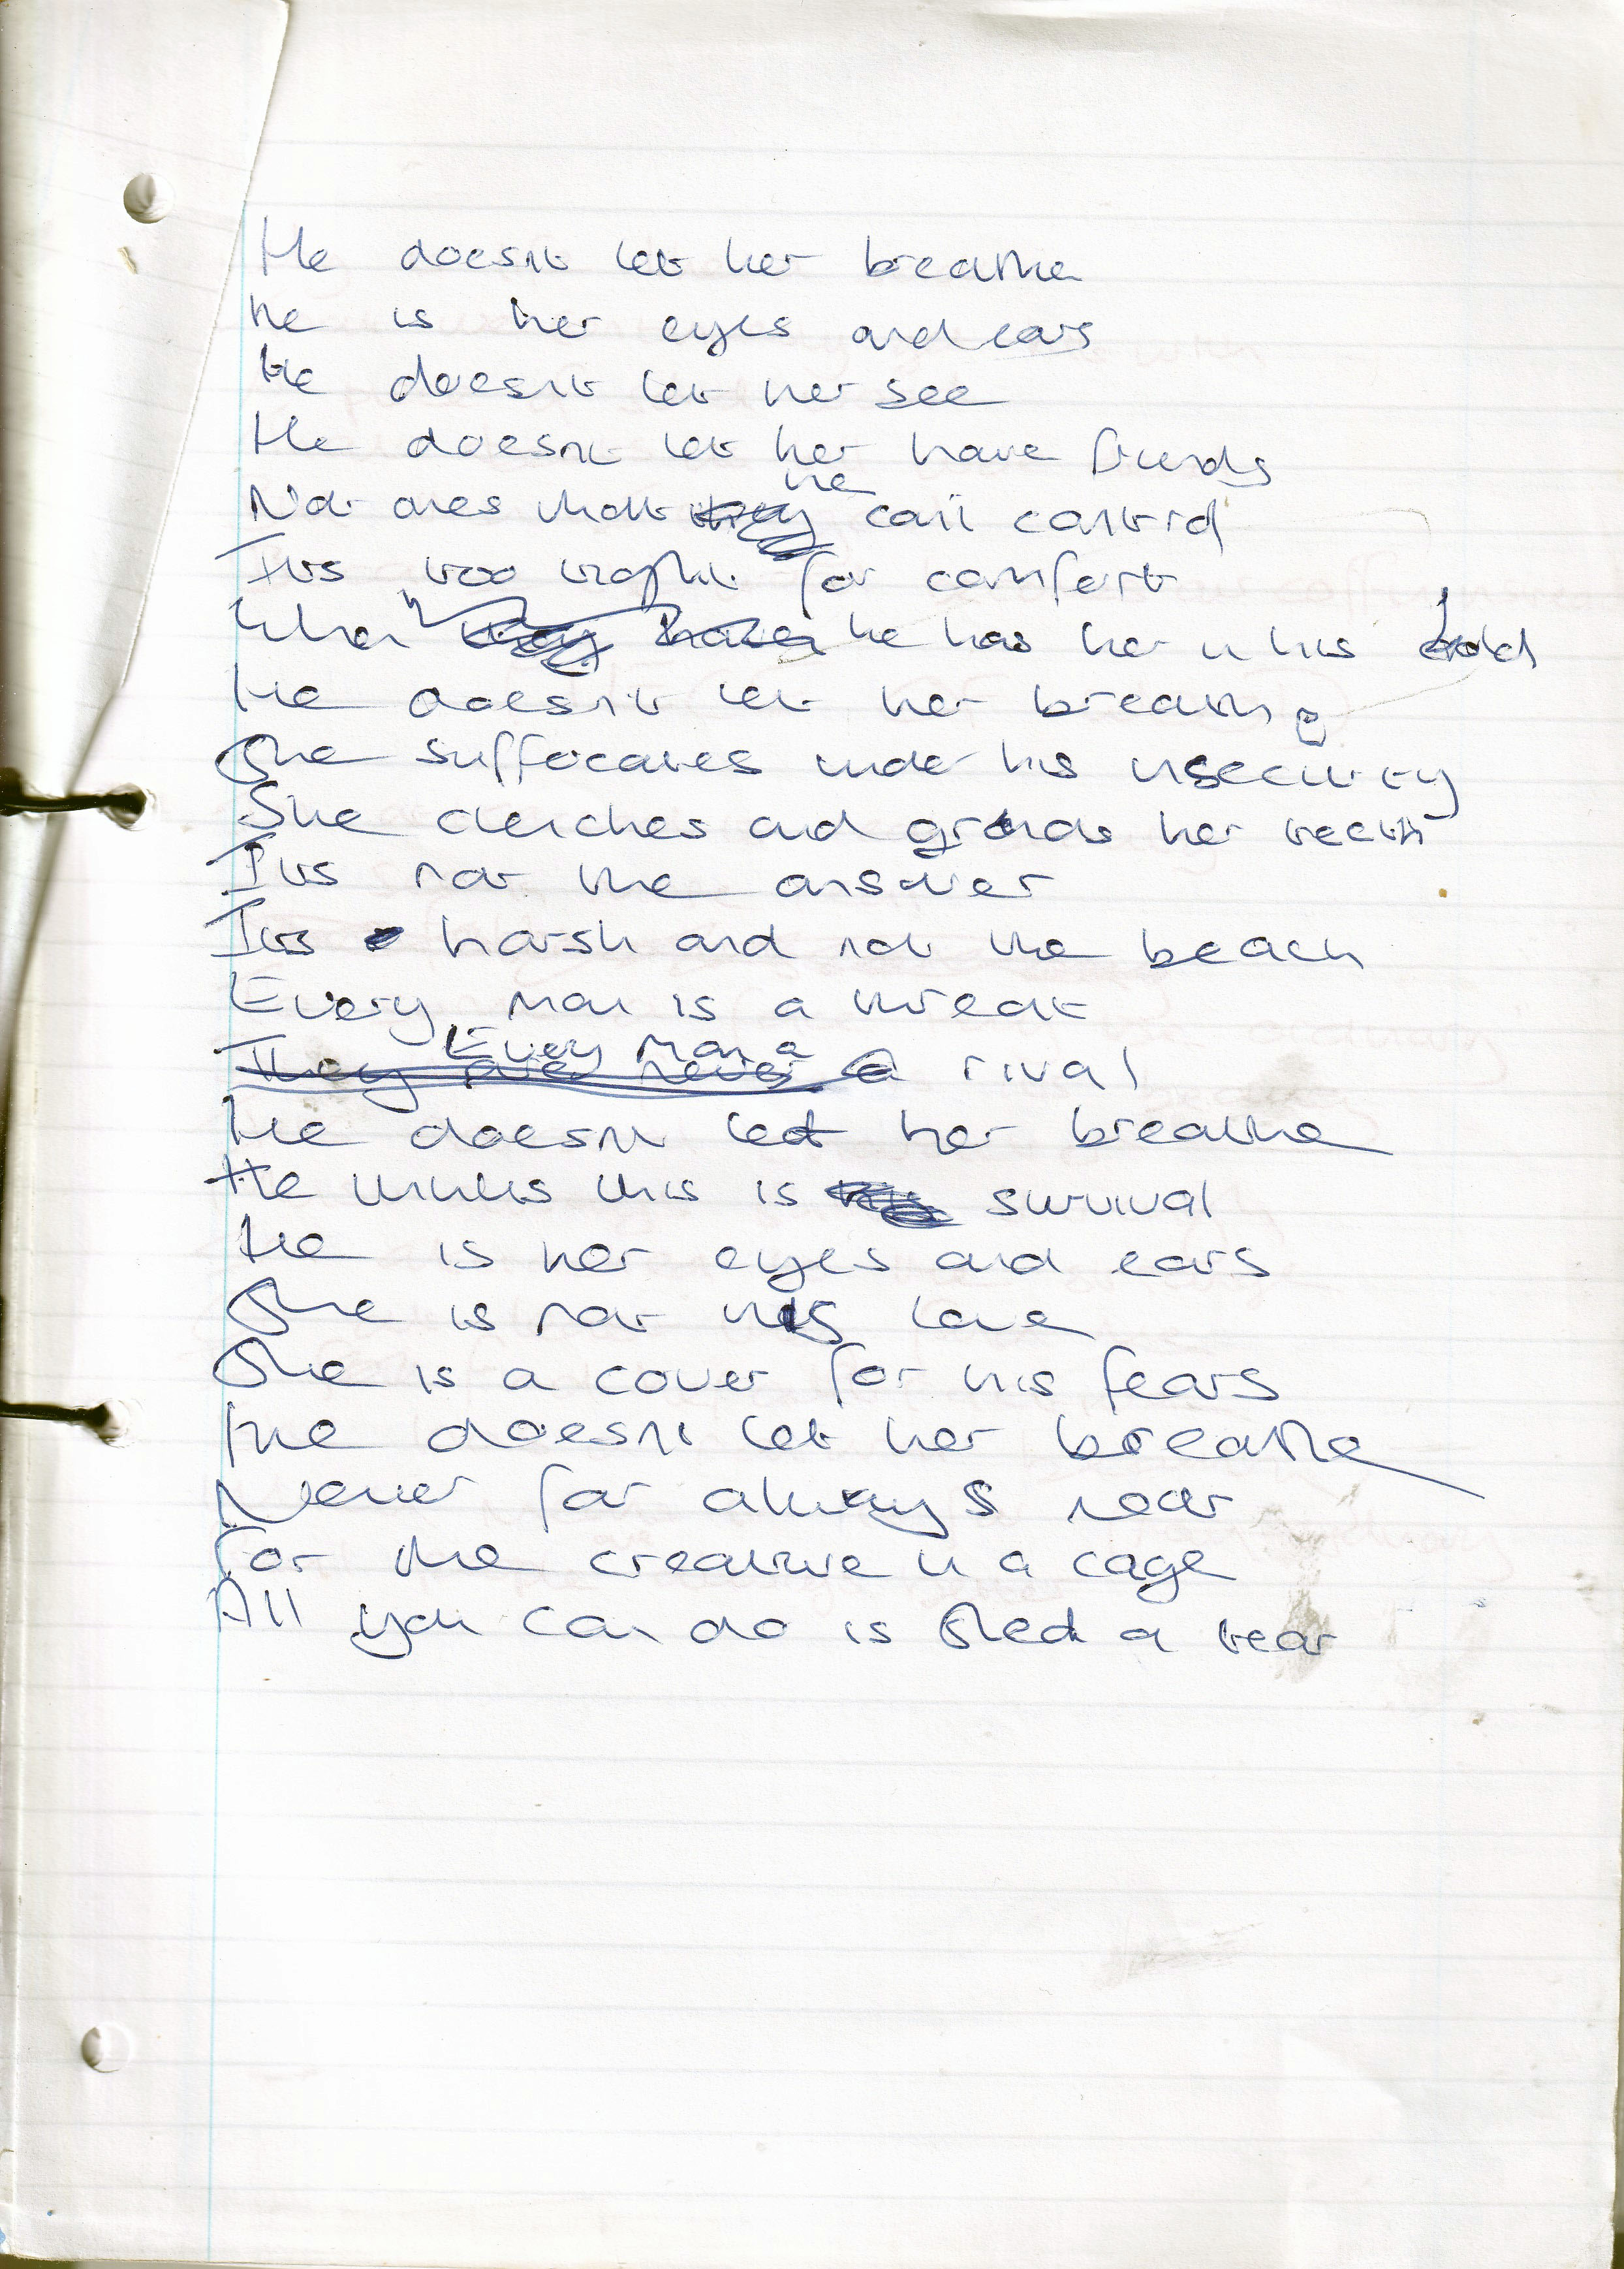 He doesn't let her breathe
He is her eyes and ears
He doesn't let her see
He doesn't let her have friends
Not ones that he can't control
Its too tight for comfort
When he has her in his hold
He doesn't let her breathe
She suffocates under his insecurity
She clenches and grinds her teeth
Its not the answer
Its harsh and not the beach
Every man is a threat
Every man a rival
He doesn't let her breathe
He thinks this is survival
He is her eyes and ears
She is not his love
She is a cover for his fears
He doesn't let her breathe
Never far always near
For the creature in a cage
All you can do is shed a tear